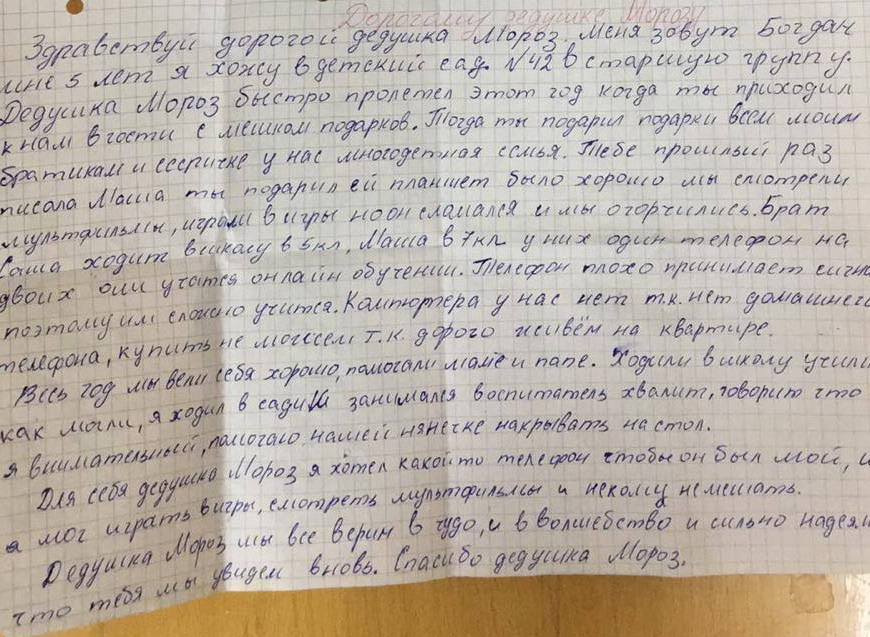 Дорогому дедушке Морозу
Здравствуй дорогой дедушка Мороз. Меня зовут Богдан
мне 5 лет я хожу в детский сад. N 42 в старшую группу.
Дедушка Мороз быстро пролетел этот год когда ты приходил
к нам в гости с мешком подарков. Тогда ты подарил подарки всем моим
братикам и сестричке у нас многодетная семья. Тебе прошлый раз
писала Маша ты подарил ей планшет было хорошо мы смотрели
мультфильмы, играли в игры но он сламался и мы огорчились. Брат
Саша ходит в школу в 5 кл, Маша в 7 кл у них один телефон на
двоих они учатся онлайн обучении. Телефон плохо принимает сигна
поэтому им сложно учится. Компютера у нас нет т.к. нет домашнего
телефона, купить не можем т.к. дорого живём на квартире.
Весь год мы вели себя хорошо, помогали маме и папе. Ходили в школу учили
как могли, я ходил в садик занимался воспитатель хвалит, говорит что
я внимательный, помогаю нашей нянечке накрывать на стол.
Для себя дедушка Мороз я хотел какой то телефон чтобы он был мой, и
я мог играть в игры, смотреть мультфильмы и некому немешать.
Дедушка Мороз мы все верим в чудо, и в волшебство и сильно надеем
что тебя мы увидем вновь. Спасибо дедушка Мороз.